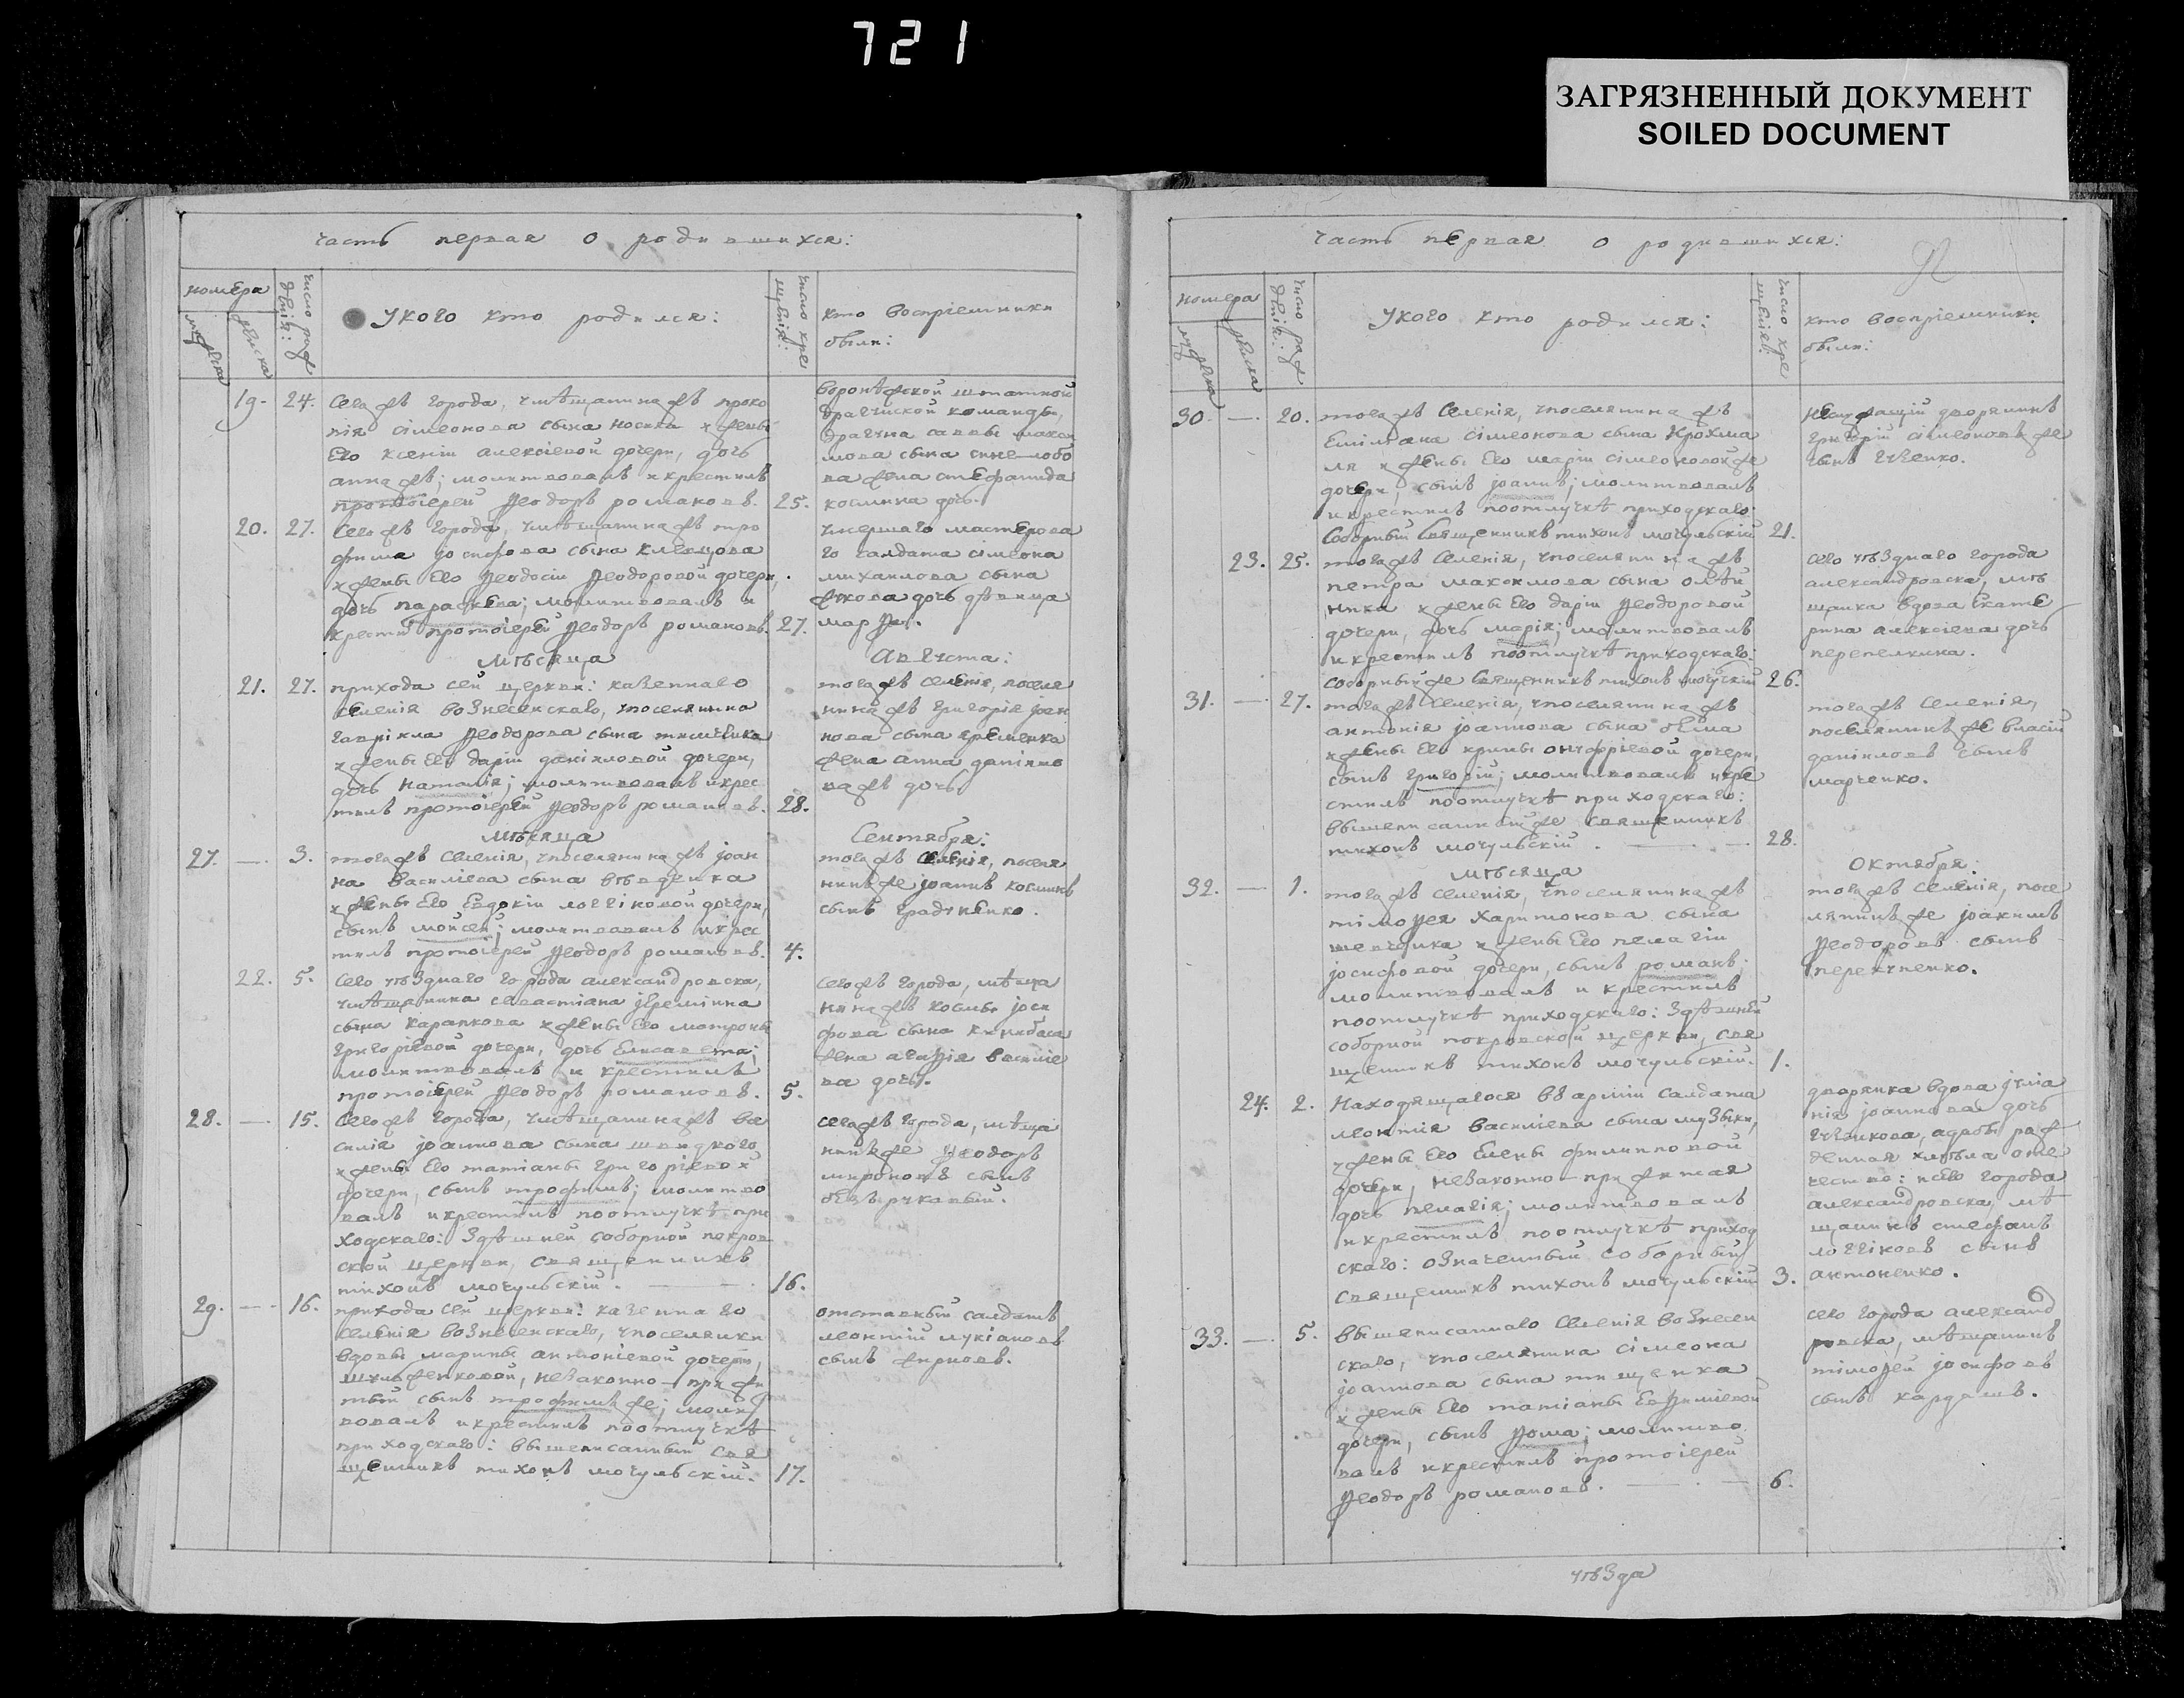 721
ЗАГРЯЗНЕННЫЙ ДОКУМЕНТ
SOILED DOCUMENT
часть первая о родившихся:
номера
мужеска
женска
число рож
денія:
Укого кто родился:
число кре
щенія:
кто воспріемники
были:
19. 24. Сегожъ города, умѣщанинажъ проко
пія сімеонова сына носика ижены
Его ксеніи алексіевой дочери, дочь
аннажъ; молитвовалъ икрестилъ
протоіерей Ѳеодоръ романовъ. 25.
воронѣжской штатной
драгунской команды,
драгуна саввы макси
мова сына
жена стефанида
космина дочь.
20. 27. Сегожъ города, умѣщанинажъ тро
фима іосифова сына клевцова
ижены Его Ѳеодосіи Ѳеодоровой дочери,
дочь параскева; молитвовалъ и
крести протоіерей Ѳеодоръ романовъ. 27.
умершаго мастерова
го салдата сімеона
михаилова сына
жукова дочь дѣвица
марѳа.
мѣсяца Августа:
21. 27. прихода сей церкви: казеннаго
селенія вознесенскаго, упоселянина
гавріила Ѳеодорова сына тимченка
ижены Его даріи даніиловой дочери,
дочь наталія; молитвовалъ икрес
тилъ протоіерей Ѳеодоръ романовъ. 28.
тогожъ селенія, поселя
нинажъ григорія іоан
нова сына яременка
жена анна даніило
важъ дочь
мѣсяца Сентября:
27. — 3. тогожъ селенія, упоселянинажъ іоан
на василіева сына вѣвденка
ижены Его Евдокіи логгіновой дочери,
сынъ моисей; молитвовалъ икрес
тилъ протоіерей Ѳеодоръ романовъ. 4.
тогожъ селенія, поселя
нинъже іоаннъ косминъ
сынъ градуненко.
22. 5. Сего уѣзднаго города александровска,
умѣщанина севастіана іереміина
сына карапкова ижены Его матроны
григоріевой дочери, дочь Елисавета;
молитвовалъ и крестилъ
протоіерей Ѳеодоръ романовъ. 5.
сегожъ города, мѣща
нинажъ космы іоси
фова сына кинибаса
жена агаѳія василіе
ва дочь.
28. — 15. Сегожъ города, умѣщанинажъ ва
силія іоаннова сына швидкого
ижены Его татіаны григоріевой
дочери, сынъ трофимъ; молитво
валъ икрестилъ поотлучкѣ при
ходскаго: здѣшней соборной покров
ской церкви, священникъ
тихонъ мочульскій. 16.
сегожъ города, мѣща
нинъже Ѳеодоръ
мироновъ сынъ
безъручавый.
29. — 16. прихода сей церкви: казеннаго
селенія вознесенскаго, упоселянки
вдовы марины антоніевой дочери,
незаконно-прижи
тый сынъ трофимъже; молит
вовалъ икрестилъ поотлучкѣ
приходскаго: вышеписанный свя
щенникъ тихонъ мочульскій. 17.
отставный салдатъ
леонтій лукіановъ
сынъ жирновъ.
часть первая о родившихся:
номера
мужеска
женска
число рож
денія:
Укого кто родился:
число кре
щенія:
кто воспріемники
были:
30. — 20. тогожъ селенія, упоселянинажъ
Емілiана сімеонова сына крохма
ля ижены Его маріи сімеоновойже
дочери, сынъ іоаннъ; молитвовалъ
икрестилъ поотлучкѣ приходскаго:
Соборный священникъ тихонъ мочульскій 21.
неслужащій дворянинъ
григорій сімеоновъже
сынъ
23. 25. тогожъ селенія, упоселянинажъ
петра максимова сына олѣй
ника ижены Его даріи Ѳеодоровой
дочери, дочь марія; молитвовалъ
икрестилъ поотлучкѣ приходскаго:
соборныйже священникъ тихонъ мочульскій 26.
сего уѣзднаго города
александровска, мѣ
щанка вдова Екате
рина алексіева дочь
перепелкина.
31. — 27. тогожъ селенія, упоселянинажъ
антонія іоаннова сына бѣлаа
ижены Его ирины онуфріевой дочери,
сынъ григорій; молитвовалъ икре
стилъ поотлучкѣ приходскаго:
вышеписаннойже священникъ
тихонъ мочульскій. 28.
тогожъ селенія,
поселянинъже власій
даніиловъ сынъ
марченко.
мѣсяца октября:
32. — 1. тогожъ селенія, упоселянинажъ
тімоѳея харитонова сына
шевчика ижены Его пелагіи
іосифовой дочери, сынъ романъ.
молитвовалъ и крестилъ
поотлучкѣ приходскаго: здѣшней
соборной покровской церкви, свя
щенникъ тихонъ мочульскій. 1.
тогожъ селенія, посе
лянинъже іоакимъ
Ѳеодоровъ сынъ
перекупенко.
24. 2. Находящагося въ арміи салдата
леонтія василіева сына музыки,
ужены Его Елены филипповой
дочери, незаконно-прижитая
дочь пелагія; молитвовалъ
икрестилъ поотлучкѣ приход
скаго: означенный соборный
священникъ тихонъ мочульскій 3.
дворянка вдова іуліа
нія іоаннова дочь
рож
денная оте
чество: исего города
александровска, мѣ
щанинъ стефанъ
логгіновъ сынъ
антоненко.
33. — 5. вышеписаннаго селенія вознесен
скаго, упоселянина сімеона
іоаннова сына тищенка
ижены Его татіаны Евѳиміевой
дочери, сынъ Ѳома; молитво
валъ икрестилъ протоіерей
Ѳеодоръ романовъ. 6.
сего города александ
ровска, мѣщанинъ
тімоѳей іосифовъ
сынъ кардашъ.
уѣзда